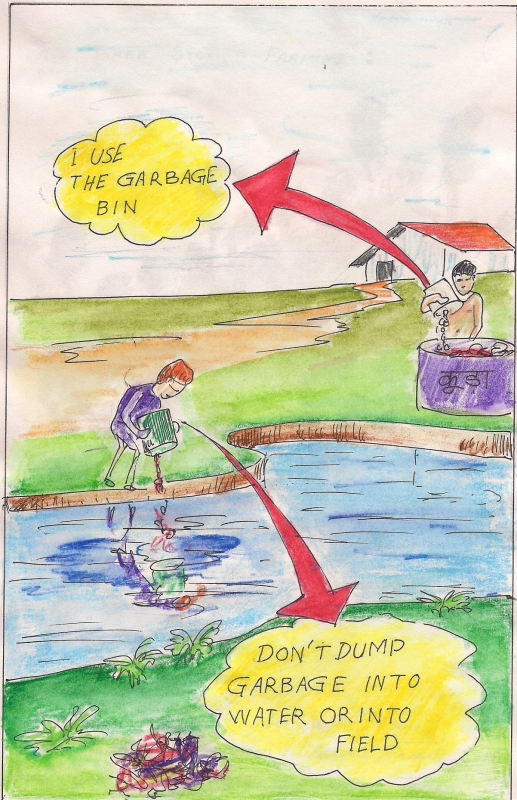 I USE
THE GARBAGE
BIN
कूडा
DON'T DUMP
GARBAGE INTO
WATER OR INTO
FIELD